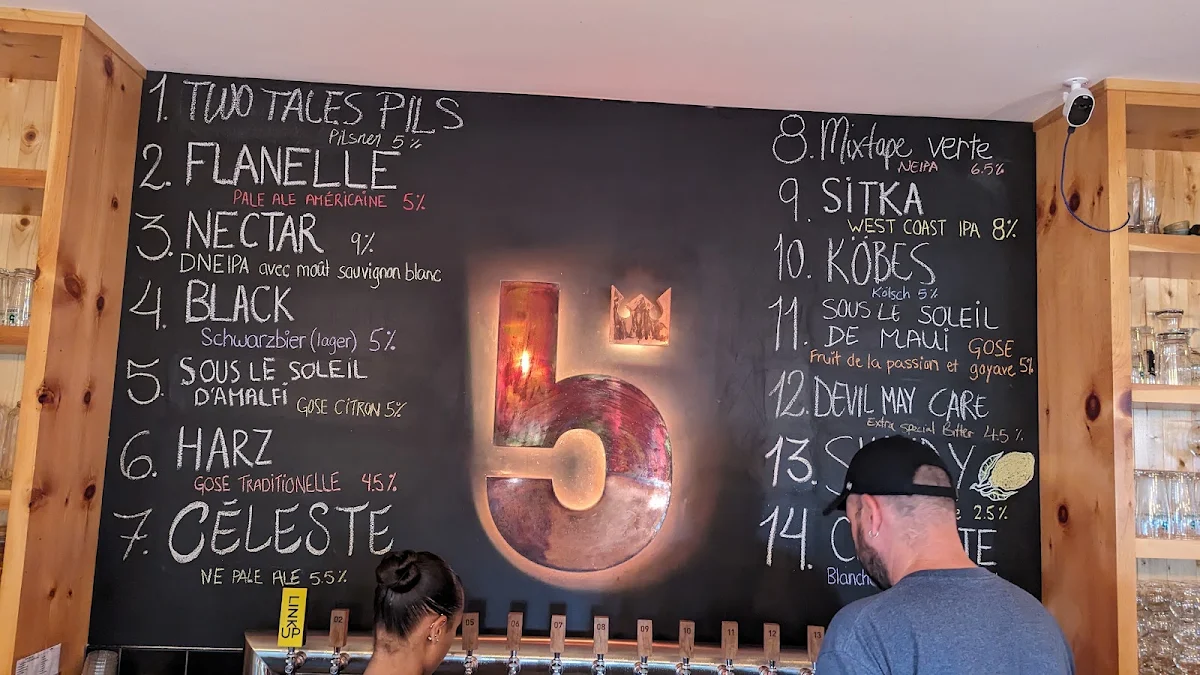 1. TWO TALES PILS
Pilsner 5%
2. FLANELLE
PALE ALE AMÉRICAINE 5%
3. NECTAR 9%
DNEIPA avec moût sauvignon blanc
4. BLACK
Schwarzbier (lager) 5%
5. SOUS LE SOLEIL
D'AMALFI GOSE CITRON 5%
6. HARZ
GOSE TRADITIONELLE 4.5%
7. CÉLESTE
NE PALE ALE 5.5%
8. Mixtape verte
NEIPA 6.5%
9. SITKA
WEST COAST IPA 8%
10. KÖBES
Kölsch 5%
11. SOUS LE SOLEIL
DE MAUI GOSE
Fruit de la passion et goyave 5%
12. DEVIL MAY CARE
Extra Special Bitter 4.5%
13.
2.5%
14.
5
LINKUP
02
05
06
07
08
09
10
11
12
13